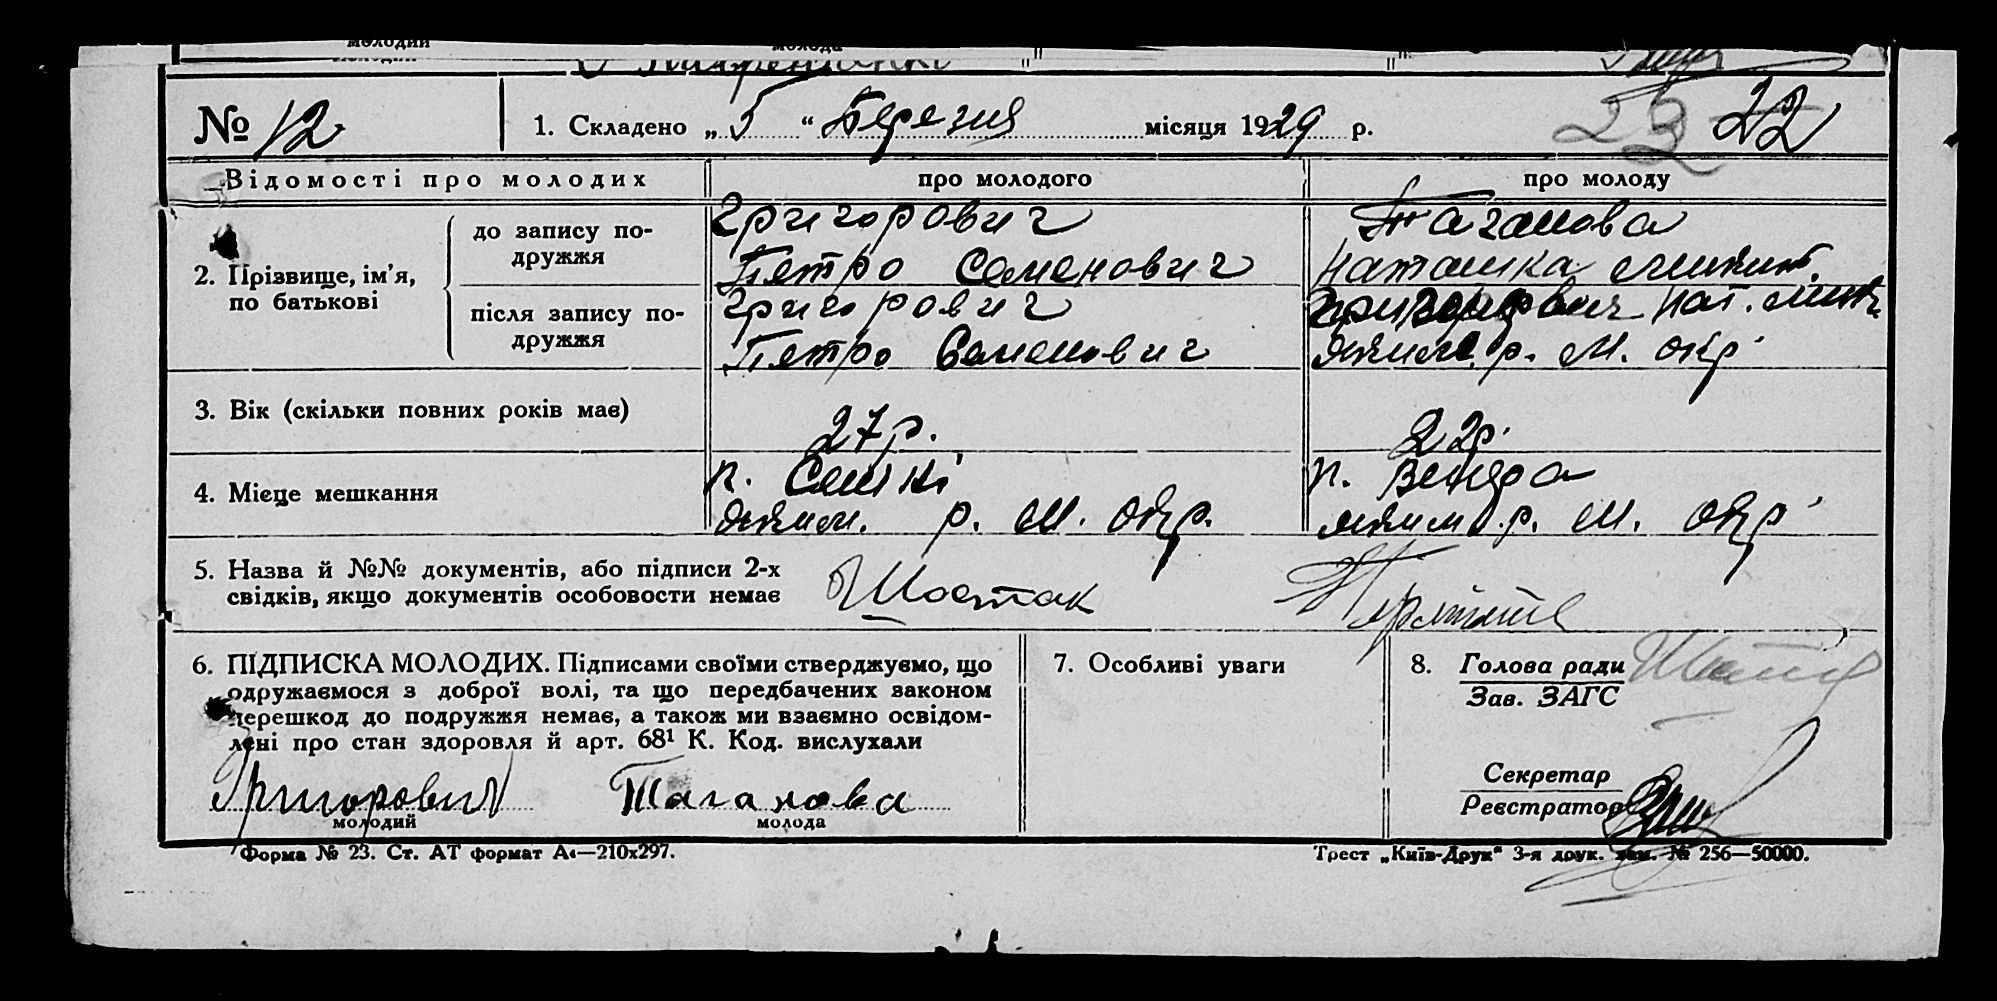 молодий
молода
№ 12
1. Складено „ 5 “ Березня місяця 1929 р.
23 22
Відомості про молодих
про молодого
про молоду
2. Прізвище, ім’я, по батькові
до запису по-
дружжя
Григорович
Петро Семенович
Таганова
Наташка
після запису по-
дружжя
Григорович
Петро Семенович
Григорович Нат.
р. М. окр.
3. Вік (скільки повних років має)
27 р.
22 р.
4. Місце мешкання
п.
р. М. окр.
п.
р. М. окр.
5. Назва й №№ документів, або підписи 2-х
свідків, якщо документів особовости немає
Шостак
6. ПІДПИСКА МОЛОДИХ. Підписами своїми стверджуємо, що
одружаємося з доброї волі, та що передбачених законом
перешкод до подружжя немає, а також ми взаємно освідом-
лені про стан здоровля й арт. 68¹ К. Код. вислухали
Григорович
молодий
Таганова
молода
7. Особливі уваги
8. Голова ради
Зав. ЗАГС
Секретар
Реєстратор
Форма № 23. Ст. АТ формат А4—210х297.
Трест „Київ-Друк“ 3-я друк. зам. № 256—50000.